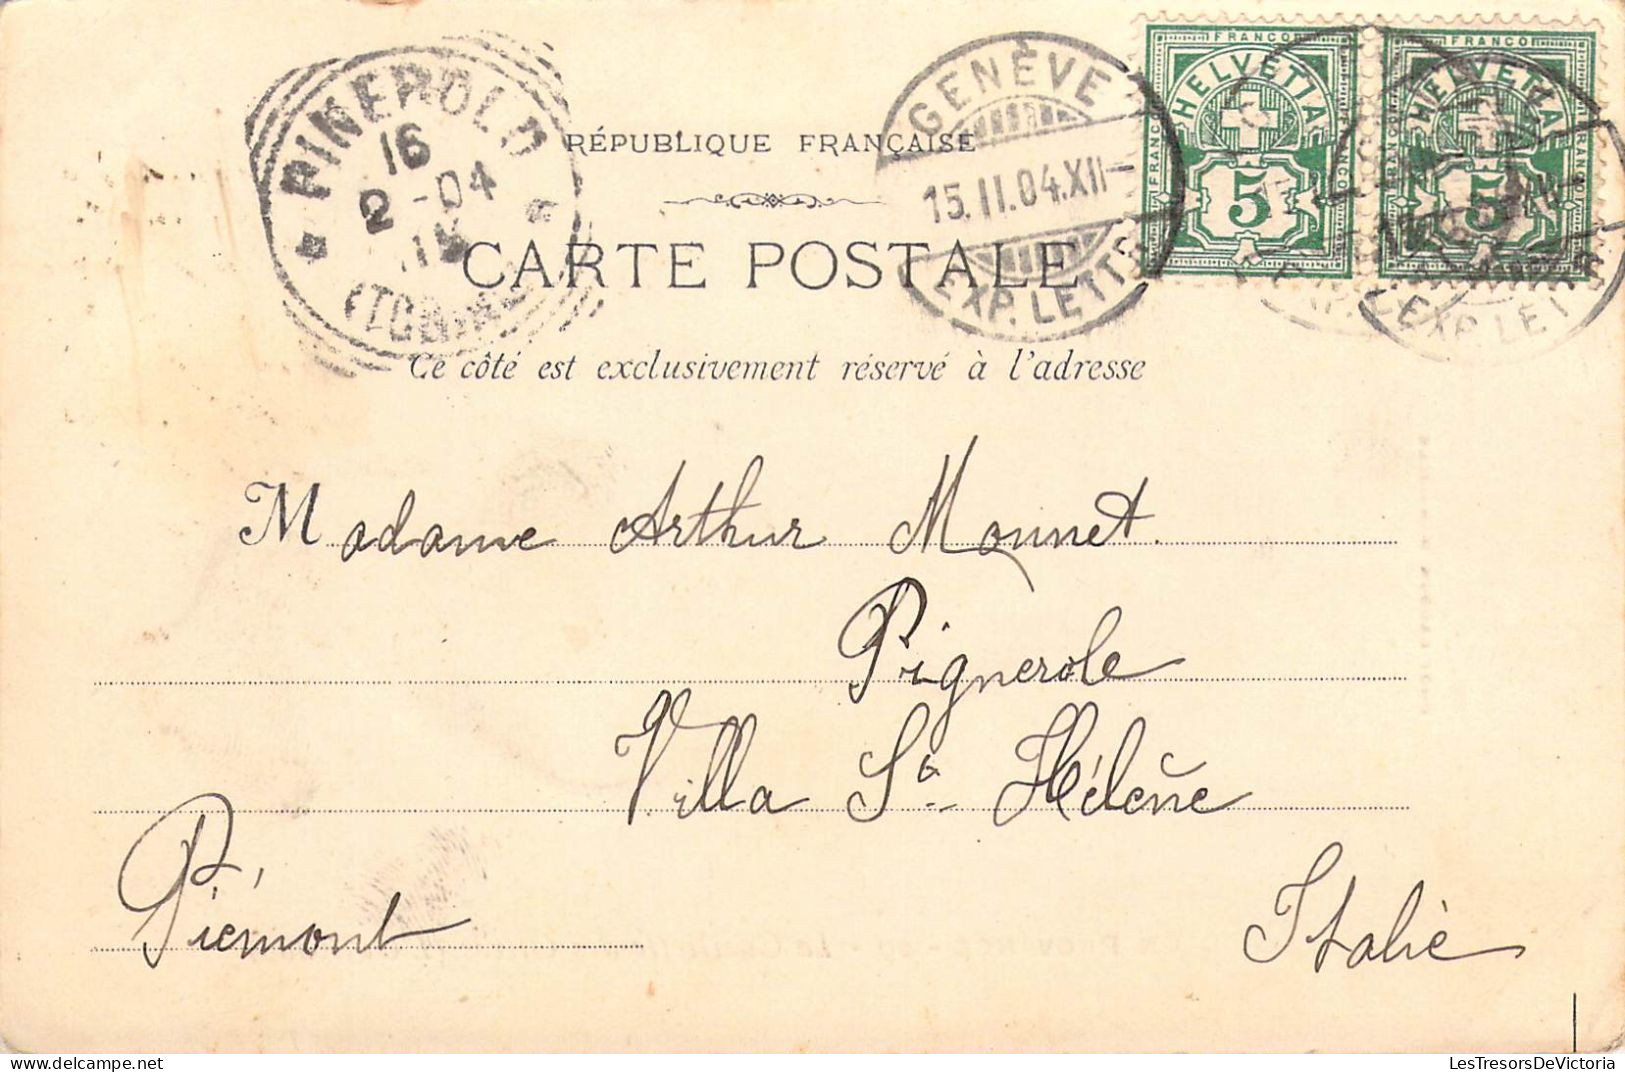 PINEROLO
16
2 - 04
RÉPUBLIQUE FRANÇAISE
CARTE POSTALE
Ce côté est exclusivement réservé à l'adresse
GENÈVE
15.II.04.XII-
EXP. LETTR
FRANCO
HELVETIA
FRANCO
FRANCO
5
FRANCO
HELVETIA
FRANCO
FRANCO
5
EXP. LET
Madame Arthur Monnet
Pignerole
Villa Ste Hélène
Piémont
Italie
LesTresorsDeVictoria